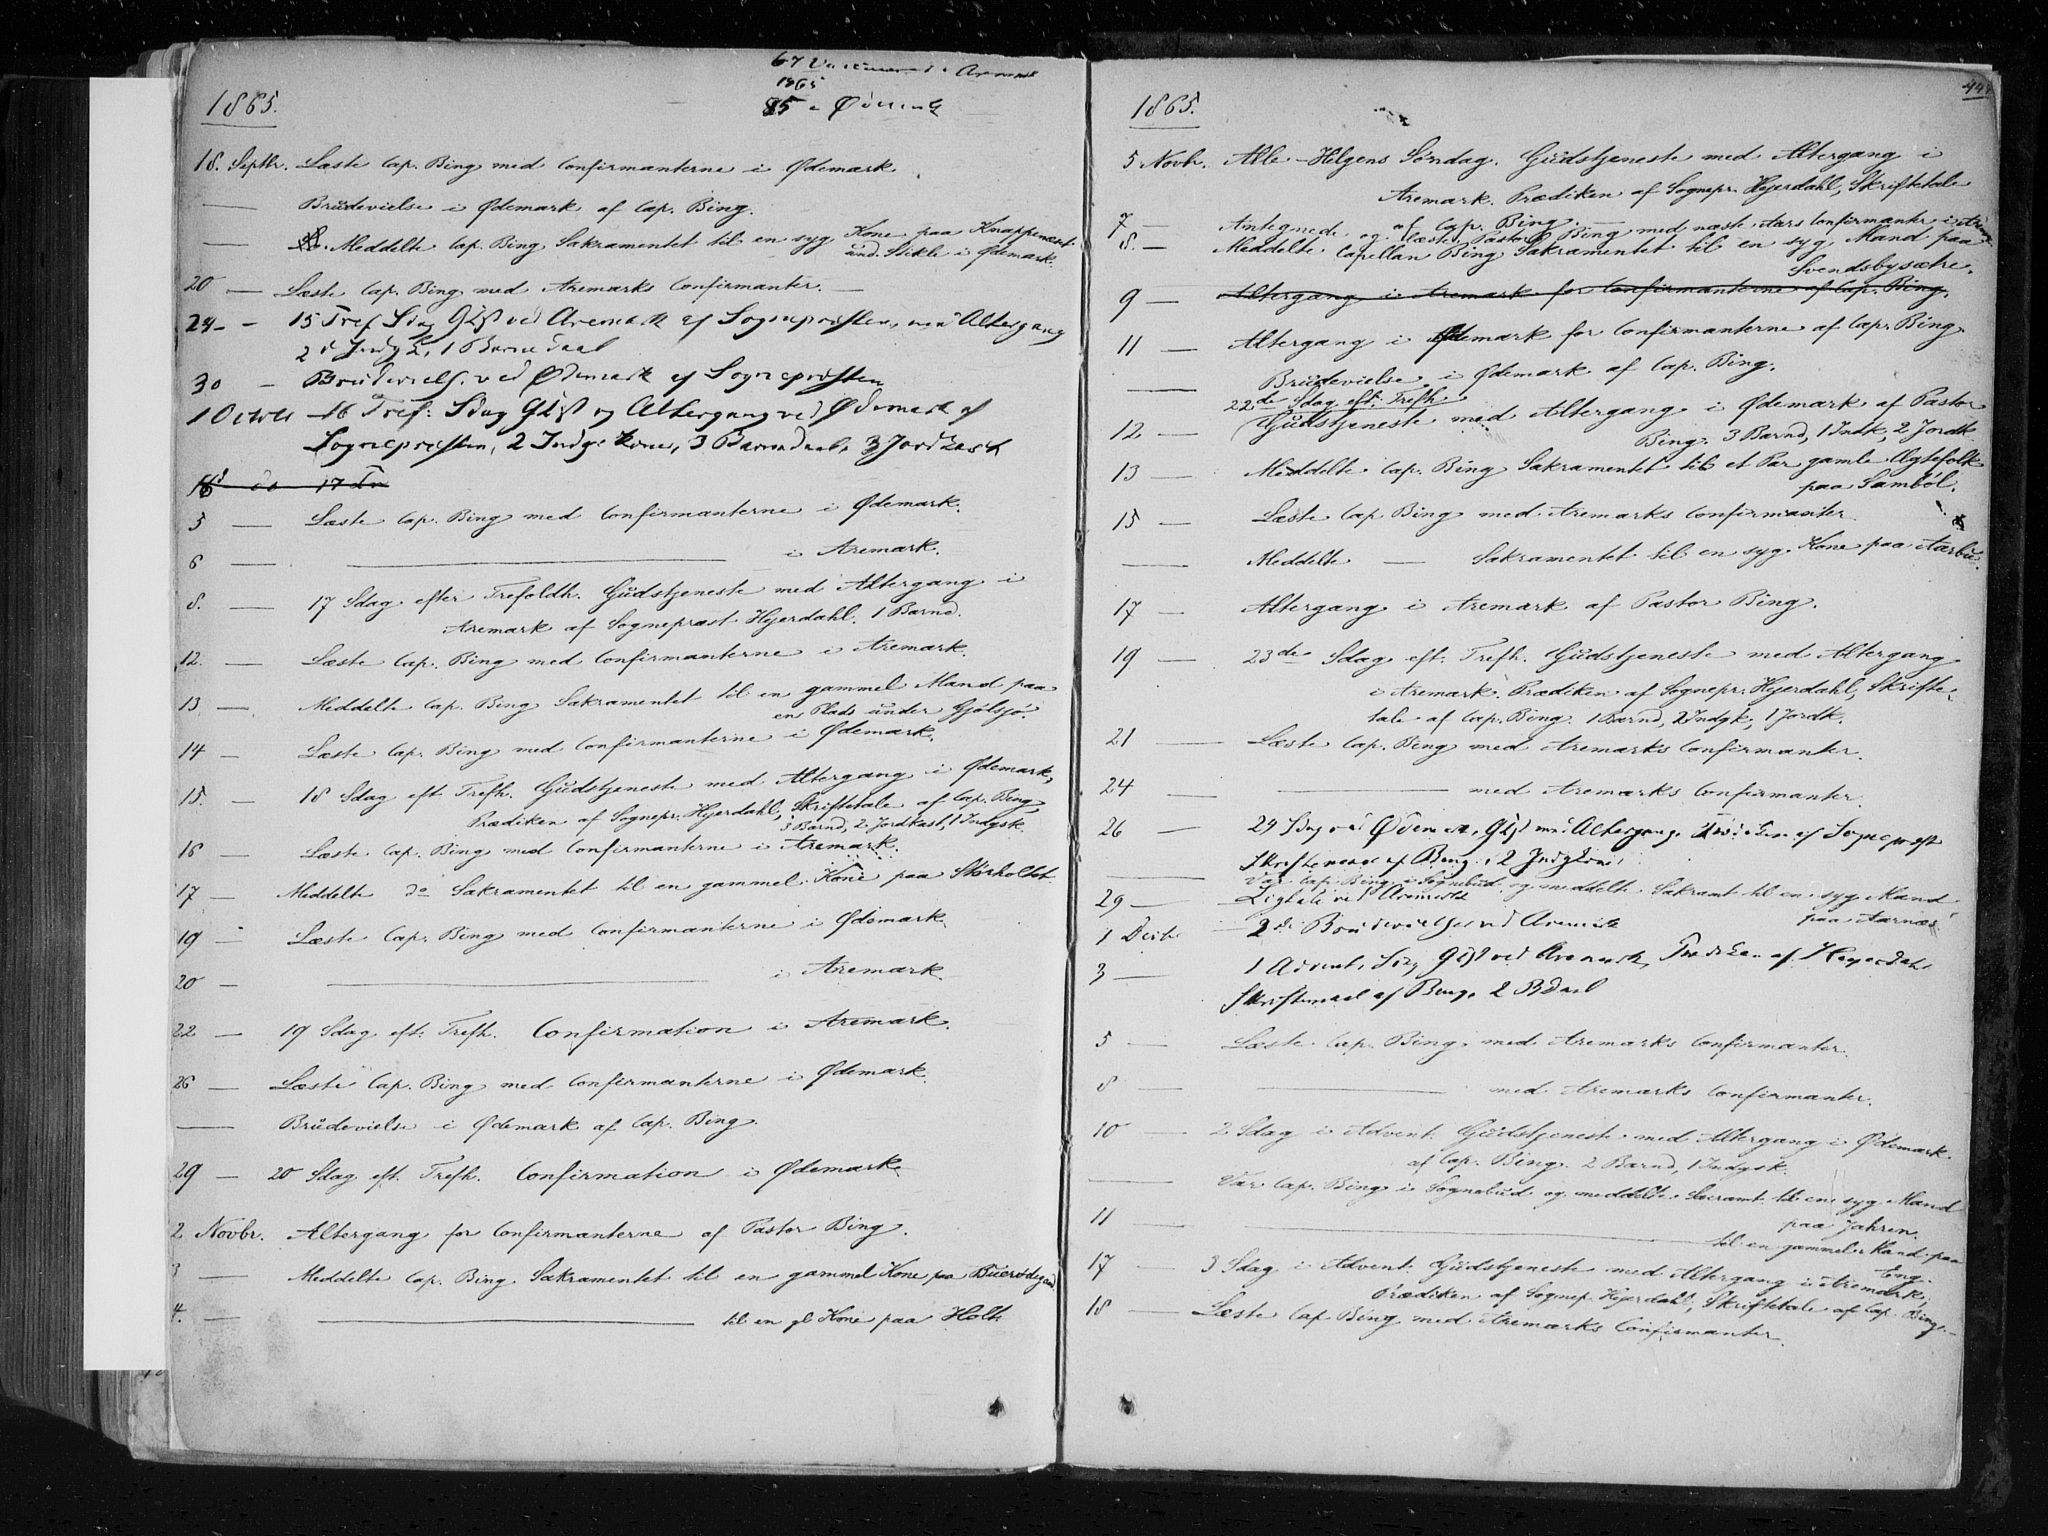 67 Vaccinered i Aremark
1865
85 i Ødemark
1865.
18. Septbr. Læste Cap. Bing med Confirmanterne i Ødemark.
— Brudevielse i Ødemark af Cap. Bing.
— Meddelte Cap. Bing Sakramentet til en syg Kone paa Knappenæset
und. Stikle i Ødemark.
20 — Læste Cap. Bing med Aremarks Confirmanter. —
24 — 15 Tref Sdag Gtjst ved Aremark af Sognepræsten, med Altergang
2 Indgk, 1 Barnedaab
30 — Brudevielse ved Ødemark af Sognepræsten
1 October — 16 Tref: Sdag Gtjst og Altergang ved Ødemark af
Sognepræsten, 2 Indg: Koner, 3 Barnedaab, 3 Jordkast
17
5 — Læste Cap. Bing med Confirmanterne i Ødemark.
6 — — i Aremark.
8. — 17 Sdag efter Trefoldh. Gudstjeneste med Altergang i
Aremark af Sognepræst Hjerdahl. 1 Barnd.
12. — Læste Cap. Bing med Confirmanterne i Aremark.
13 — Meddelte Cap. Bing Sakramentet til en gammel Mand paa
en Plads under Gjølsjø.
14 — Læste Cap. Bing med Confirmanterne i Ødemark.
15. — 18 Sdag eft Trefh. Gudstjeneste med Altergang i Ødemark,
Prædiken af Sognepr. Hjerdahl, Skriftetale af Cap. Bing,
3 Barnd, 2 Jordkast, 1 Indgsk.
16 — Læste Cap. Bing med Confirmanterne i Aremark.
17 — Meddelte do Sakramentet til en gammel Kone paa Størholtet
19 — Læste Cap. Bing med Confirmanterne i Ødemark.
20 — — i Aremark
22 — 19 Sdag eft: Trefh. Confirmation i Aremark.
26 — Læste Cap. Bing med Confirmanterne i Ødemark.
— Brudevielse i Ødemark af Cap. Bing.
29 — 20 Sdag eft. Trefh. Confirmation i Ødemark.
2 Novbr. Altergang for Confirmanterne af Pastor Bing.
3 — Meddelte Cap. Bing Sakramentet til en gammel Kone paa
4. — — til en gl Kone paa Holt
1865.
5 Novbr. Alle-Helgens Søndag. Gudstjeneste med Altergang i
Aremark. Prædiken af Sognepr. Hjerdahl, Skriftetale
af Cap. Bing.
7 — Antegnede og læste Pastor Bing med næste Aars Confirmantr i Arem.
8. — Meddelte Capellan Bing Sakramentet til en syg Mand paa
Svendsbysætre.
9 — Altergang i Aremark for Confirmanterne af Cap. Bing.
11 — Altergang i Ødemark for Confirmanterne af Cap. Bing.
— Brudevielse i Ødemark af Cap. Bing.
22de Sdag eft. Trefh.
12 — Gudstjeneste med Altergang i Ødemark af Pastor
Bing. 3 Barnd, 1 Indk, 2 Jordk
13 — Meddelte Cap. Bing Sakramentet til et Par gamle Ægtefolk
paa Sambøl.
15 — Læste Cap Bing med Aremarks Confirmanter
— Meddelte — Sakramentet til en syg Kone paa Aarbu.
17 — Altergang i Aremark af Pastor Bing.
19 — 23de Sdag eft. Trefh. Gudstjeneste med Altergang
i Aremark. Prædiken af Sognepr. Hjerdahl, Skrifte-
tale af Cap. Bing. 1 Barnd, 2 Indgk, 1 Jordk.
21 — Læste Cap. Bing med Aremarks Confirmanter.
24 — — med Aremarks Confirmanter.
26 — 24 Sdag ved Ødemark, Gtjst med Altergang. Prædiken af Sognepræst
Skriftemaal af Bing, 2 Indgkoner
— Var Cap. Bing i Sognebud og meddelte Sakramt til en syg Mand
paa Aarnæs
29 — Ligtale ved Aremark
1 Decbr 2 Brudevielser ved Aremark
3 — 1 Advent. Sdag Gtjst ved Aremark, Prædiken af Hjerdahl
Skriftemaal af Bing. 2 Bdaab
5 — Læste Cap. Bing med Aremarks Confirmanter.
8 — — med Aremarks Confirmanter.
10 — 2 Sdag i Advent. Gudstjeneste med Altergang i Ødemark.
af Cap. Bing. 2 Barnd, 1 Indgsk.
— Var Cap. Bing i Sognebud og meddelte Sacramt til en syg Mand
paa Jahren.
11 — — til en gammel Mand paa
Eng.
17 — 3 Sdag i Advent. Gudstjeneste med Altergang i Aremark,
Prædiken af Sognep. Hjerdahl, Skriftetale af Cap. Bing.
18 — Læste Cap Bing med Aremarks Confirmanter.